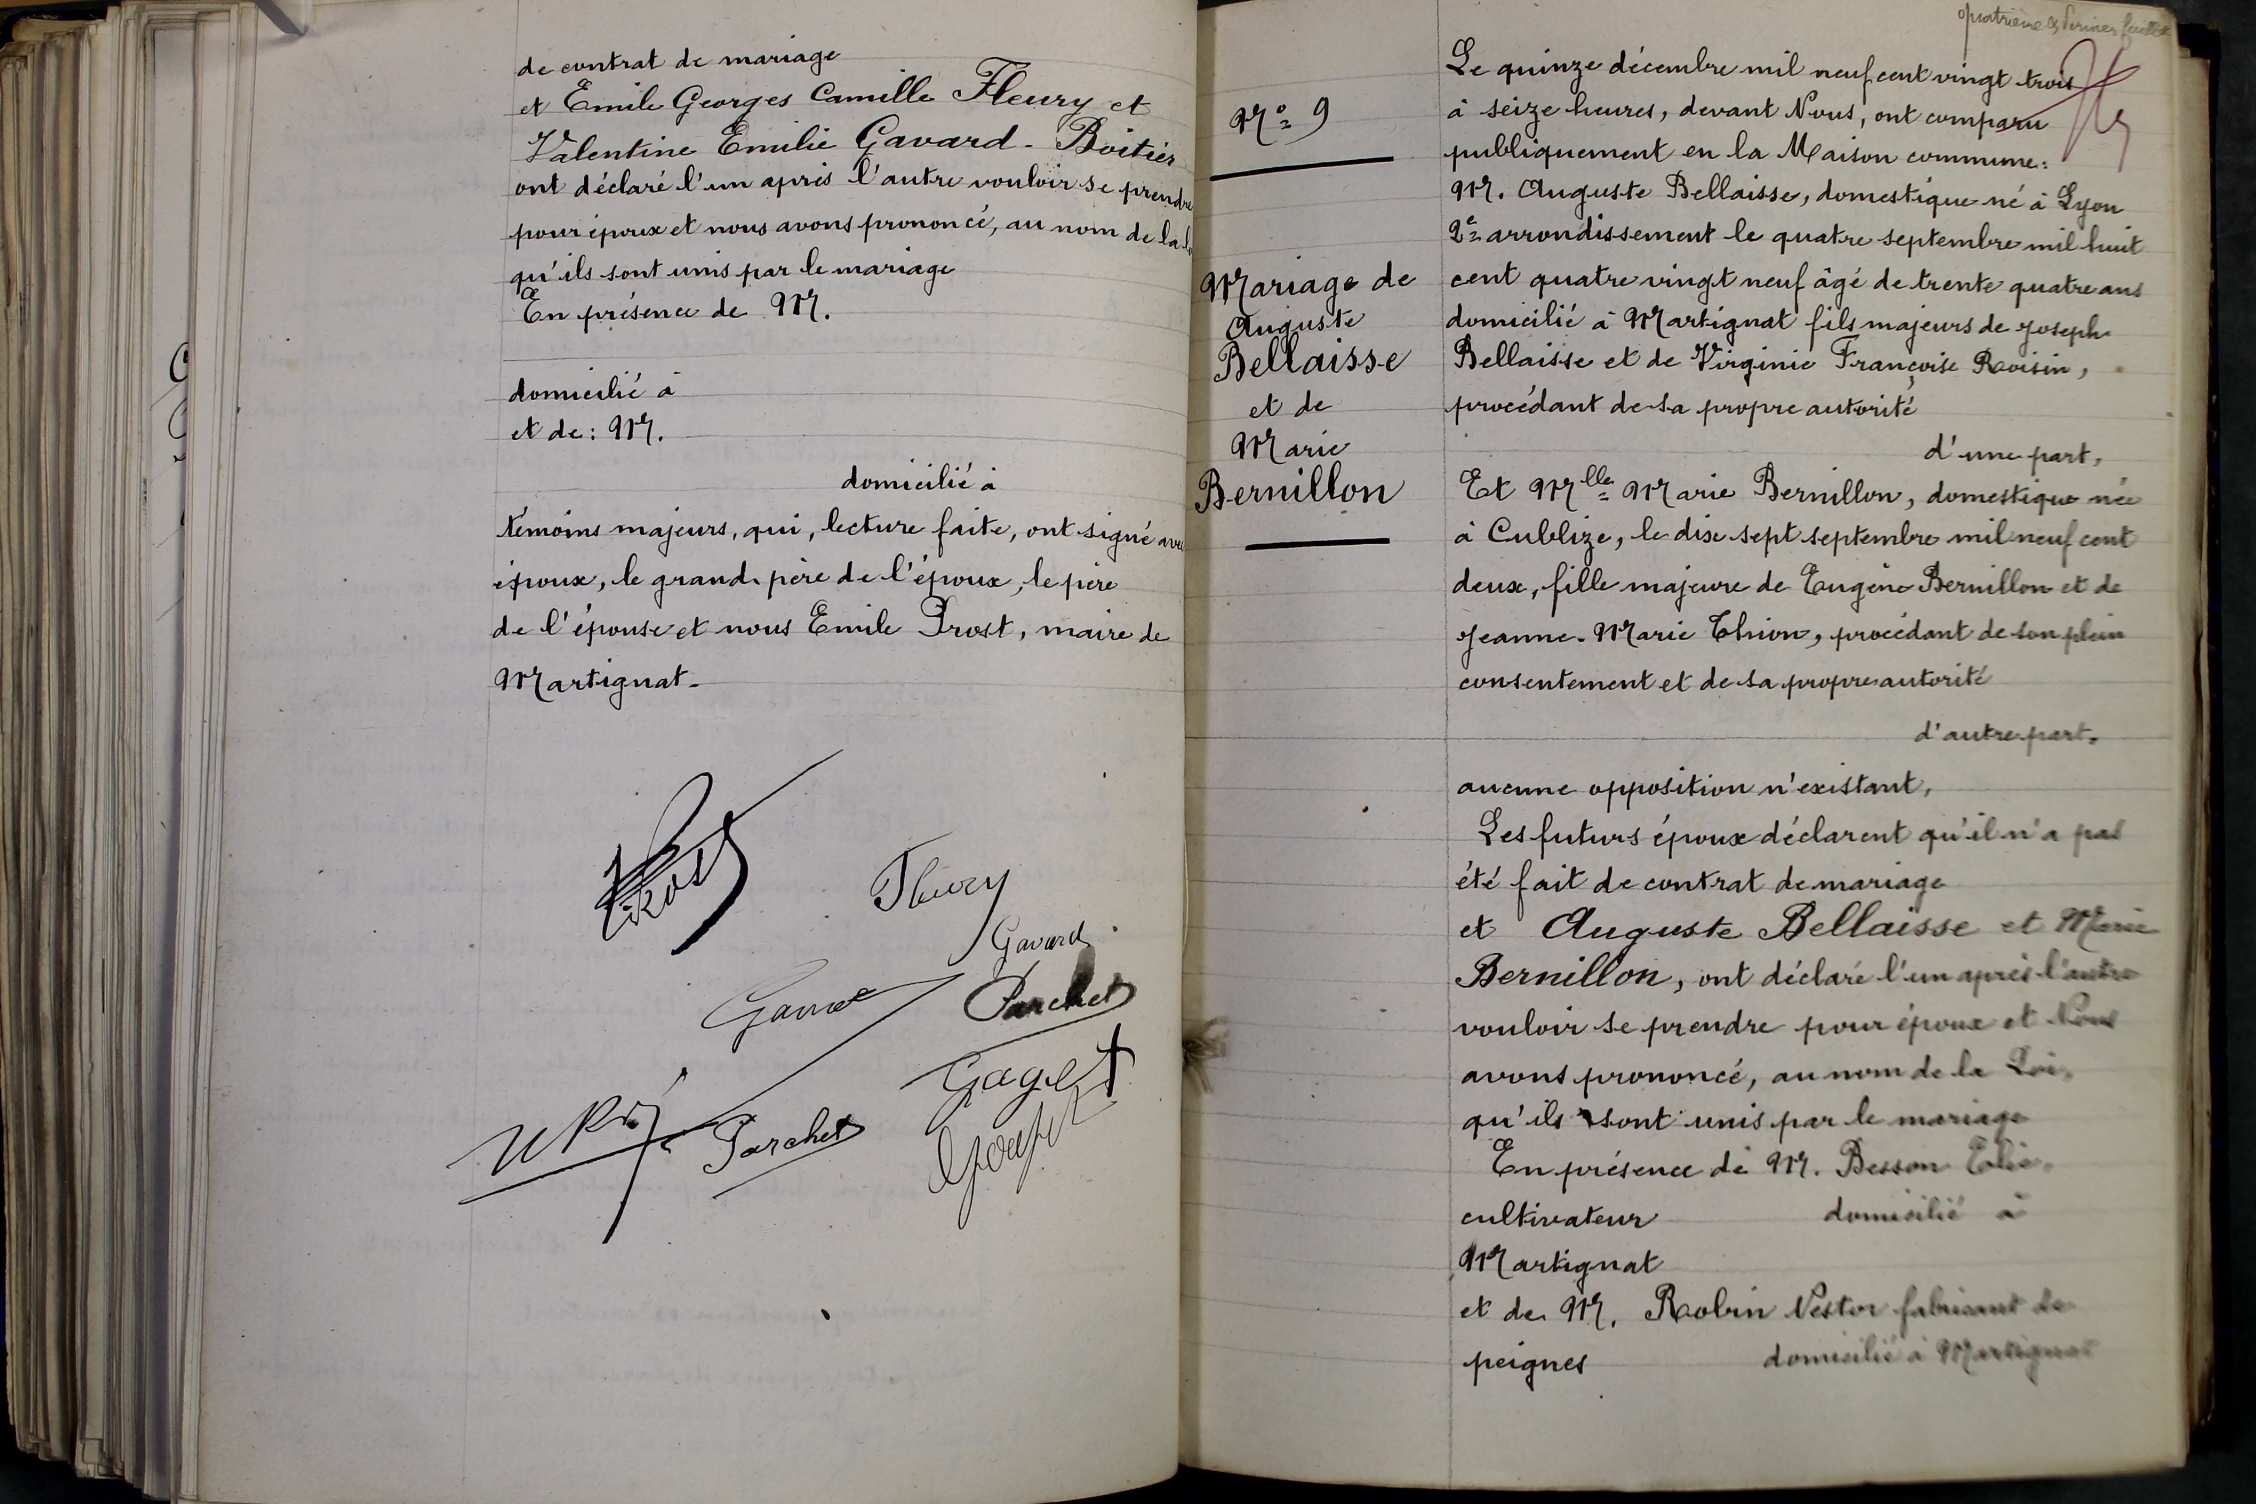 de contrat de mariage
et Emile Georges Camille Fleury et
Valentine Emilie Gavard-Boitier
ont déclaré l'un après l'autre vouloir se prendre
pour époux et nous avons prononcé, au nom de la
qu'ils sont unis par le mariage
En présence de Mr.
domicilié à
et de : Mr.
domicilié à
témoins majeurs, qui, lecture faite, ont signé avec
époux, le grand-père de l'époux, le père
de l'épouse et nous Emile Prost, maire de
Martignat-
Prost
Fleury
Gavard
Parchet
Gaget
Parchet
quatrième & dernier feuillet
No 9
Mariage de
Auguste
Bellaisse
et de
Marie
Bernillon
Le quinze décembre mil neuf cent vingt trois
à seize heures, devant Nous, ont comparu
publiquement en la Maison commune :
Mr. Auguste Bellaisse, domestique né à Lyon
2e arrondissement le quatre septembre mil huit
cent quatre vingt neuf âgé de trente quatre ans
domicilié à Martignat fils majeurs de Joseph
Bellaisse et de Virginie Françoise Roisin,
procédant de sa propre autorité
d'une part,
Et Mlle Marie Bernillon, domestique née
à Cublize, le dix sept septembre mil neuf cent
deux, fille majeure de Eugène Bernillon et de
Jeanne-Marie Thion, procédant de son plein
consentement et de sa propre autorité
d'autre part.
aucune opposition n'existant,
Les futurs époux déclarent qu'il n'a pas
été fait de contrat de mariage
et Auguste Bellaisse et Marie
Bernillon, ont déclaré l'un après l'autre
vouloir se prendre pour époux et Nous
avons prononcé, au nom de la Loi,
qu'ils sont unis par le mariage
En présence de Mr. Besson Elie,
cultivateur domicilié à
Martignat
et de Mr. Robin Nestor fabricant de
peignes domicilié à Martignat